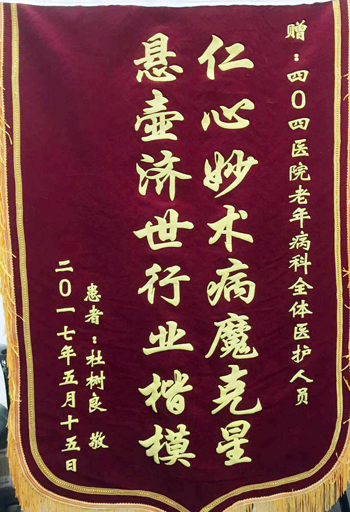 赠：四〇四医院老年病科全体医护人员
仁心妙术病魔克星
悬壶济世行业楷模
患者：杜树良 敬
二〇一七年五月十五日